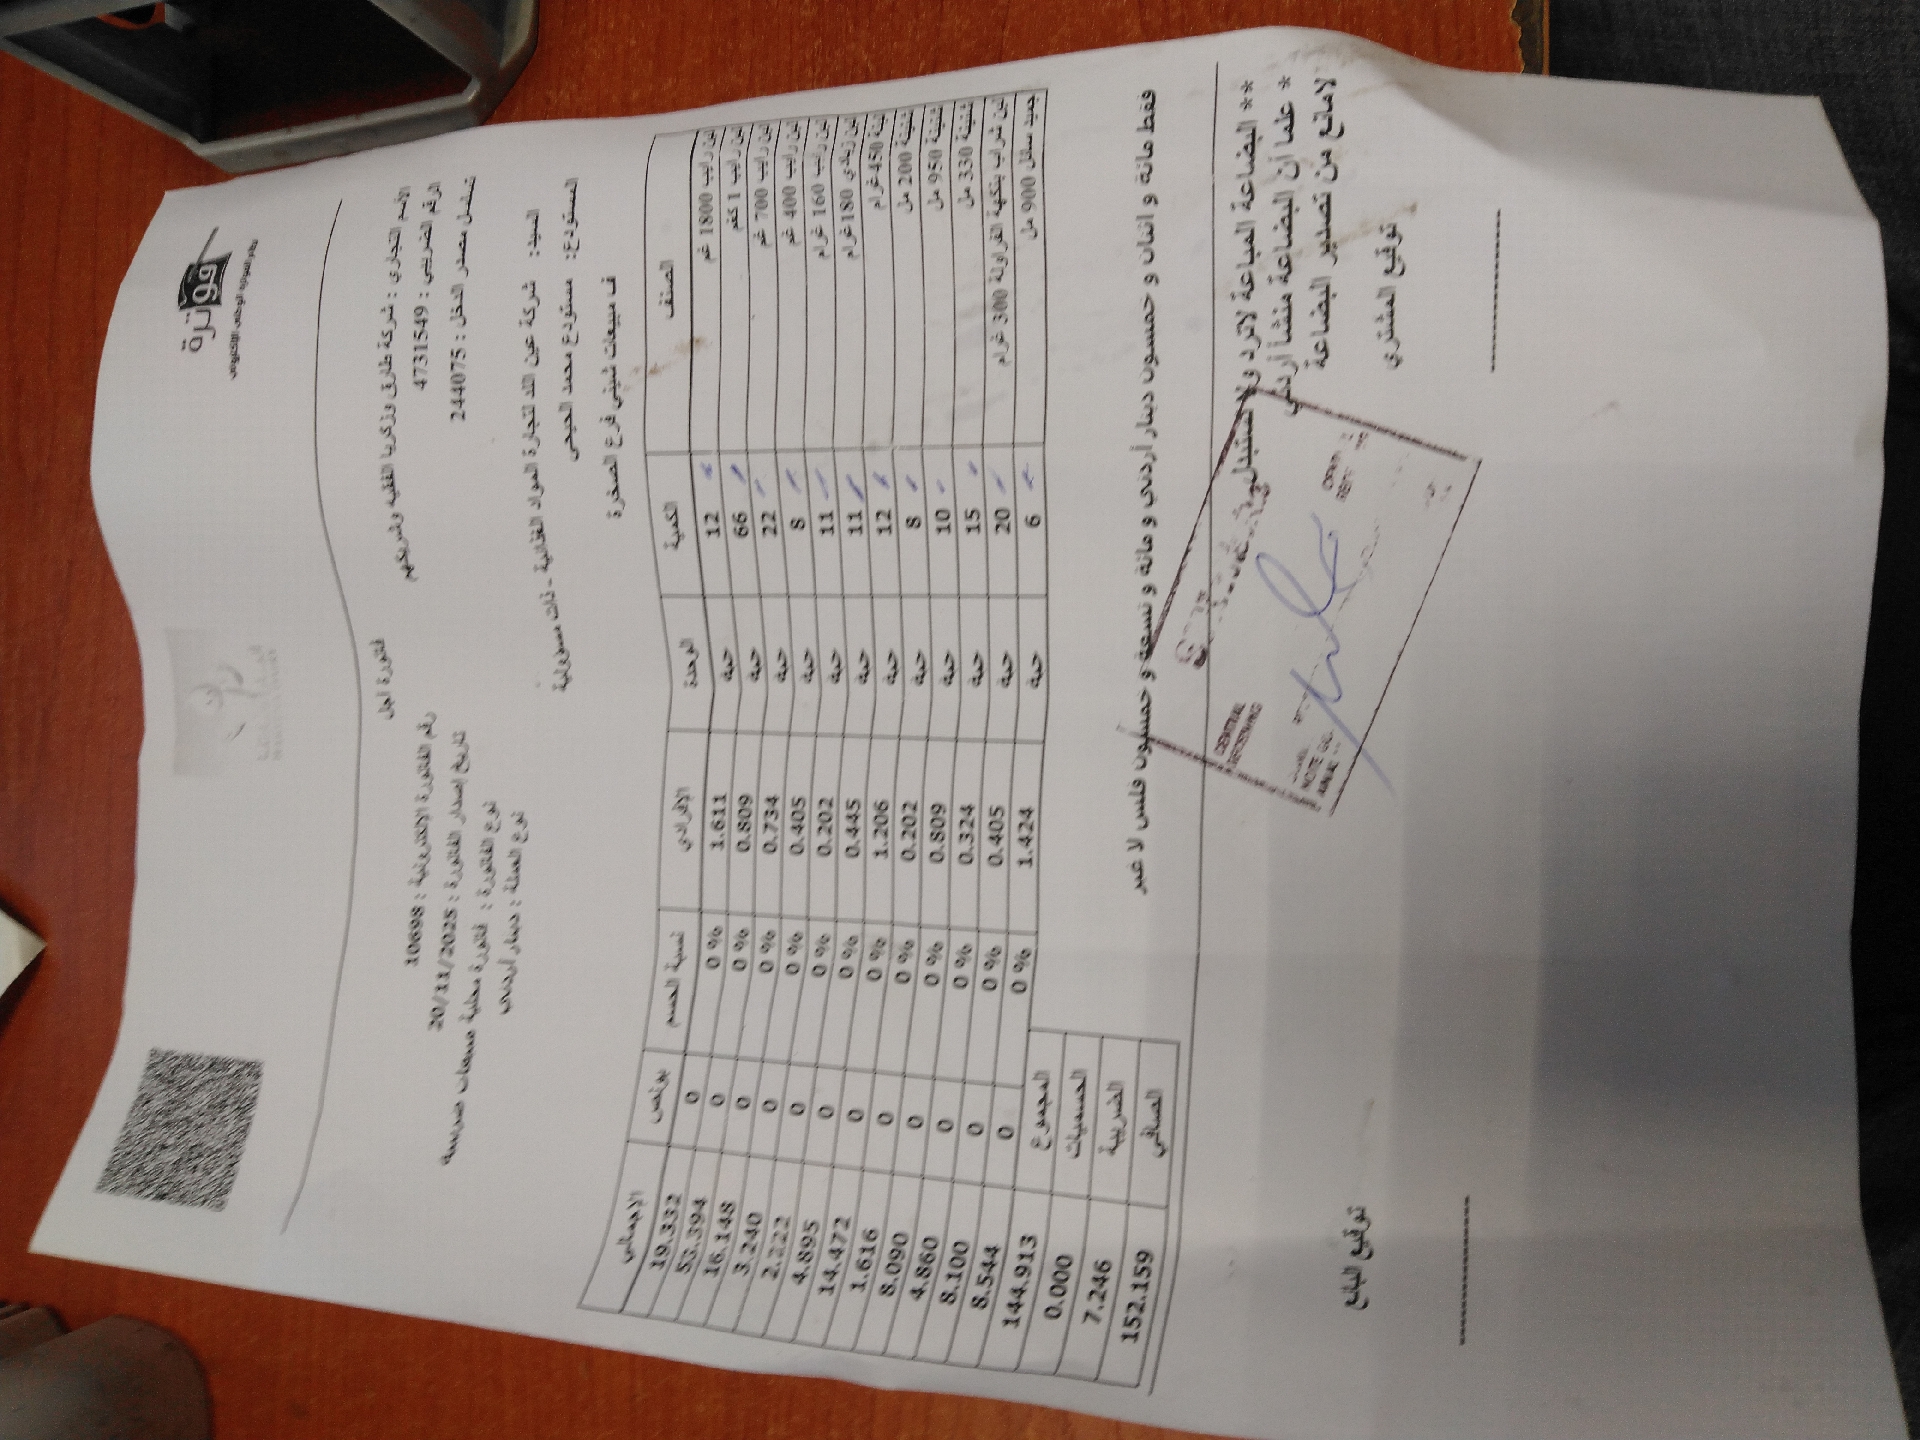 فوترة
نظام الفوترة الوطني الإلكتروني
فاتورة آجل
الاسم التجاري : شركة طارق وزكريا الفقيه وشريكهم
الرقم الضريبي : 4731549
تسلسل مصدر الدخل : 244075
رقم الفاتورة الإلكترونية : 10698
تاريخ إصدار الفاتورة : 20/11/2025
نوع الفاتورة : فاتورة محلية مبيعات ضريبية
نوع العملة : دينار أردني
السيد: شركة عين اللد لتجارة المواد الغذائية - ذات مسؤولية
المستودع: مستودع محمد الحيحي
ف مبيعات شيني فرع الصخرة
الصنف الكمية الوحدة الإفرادي نسبة الحسم بونص الاجمالي
لبن رايب 1800 غم 12 حبة 1.611 0 % 0 19.332
لبن رايب 1 كغم 66 حبة 0.809 0 % 0 53.394
لبن رايب 700 غم 22 حبة 0.734 0 % 0 16.148
لبن رايب 400 غم 8 حبة 0.405 0 % 0 3.240
لبن رايب 160 غرام 11 حبة 0.202 0 % 0 2.222
لبن زبادي 180غرام 11 حبة 0.445 0 % 0 4.895
لبنة 450 غرام 12 حبة 1.206 0 % 0 14.472
شنينة 200 مل 8 حبة 0.202 0 % 0 1.616
شنينة 950 مل 10 حبة 0.809 0 % 0 8.090
شنينة 330 مل 15 حبة 0.324 0 % 0 4.860
لبن شراب بنكهة الفراولة 300 غرام 20 حبة 0.405 0 % 0 8.100
جميد سائل 900 مل 6 حبة 1.424 0 % 0 8.544
المجموع 144.913
الحسميات 0.000
الضريبة 7.246
الصافي 152.159
فقط مائة و اثنان و خمسون دينار أردني و مائة و تسعة و خمسون فلس لا غير
** البضاعة المباعة لاترد ولا تستبدل
* علما أن البضاعة منشأ أردني
لامانع من تصدير البضاعة
GENERAL
توقيع المشتري
توقيع البائع